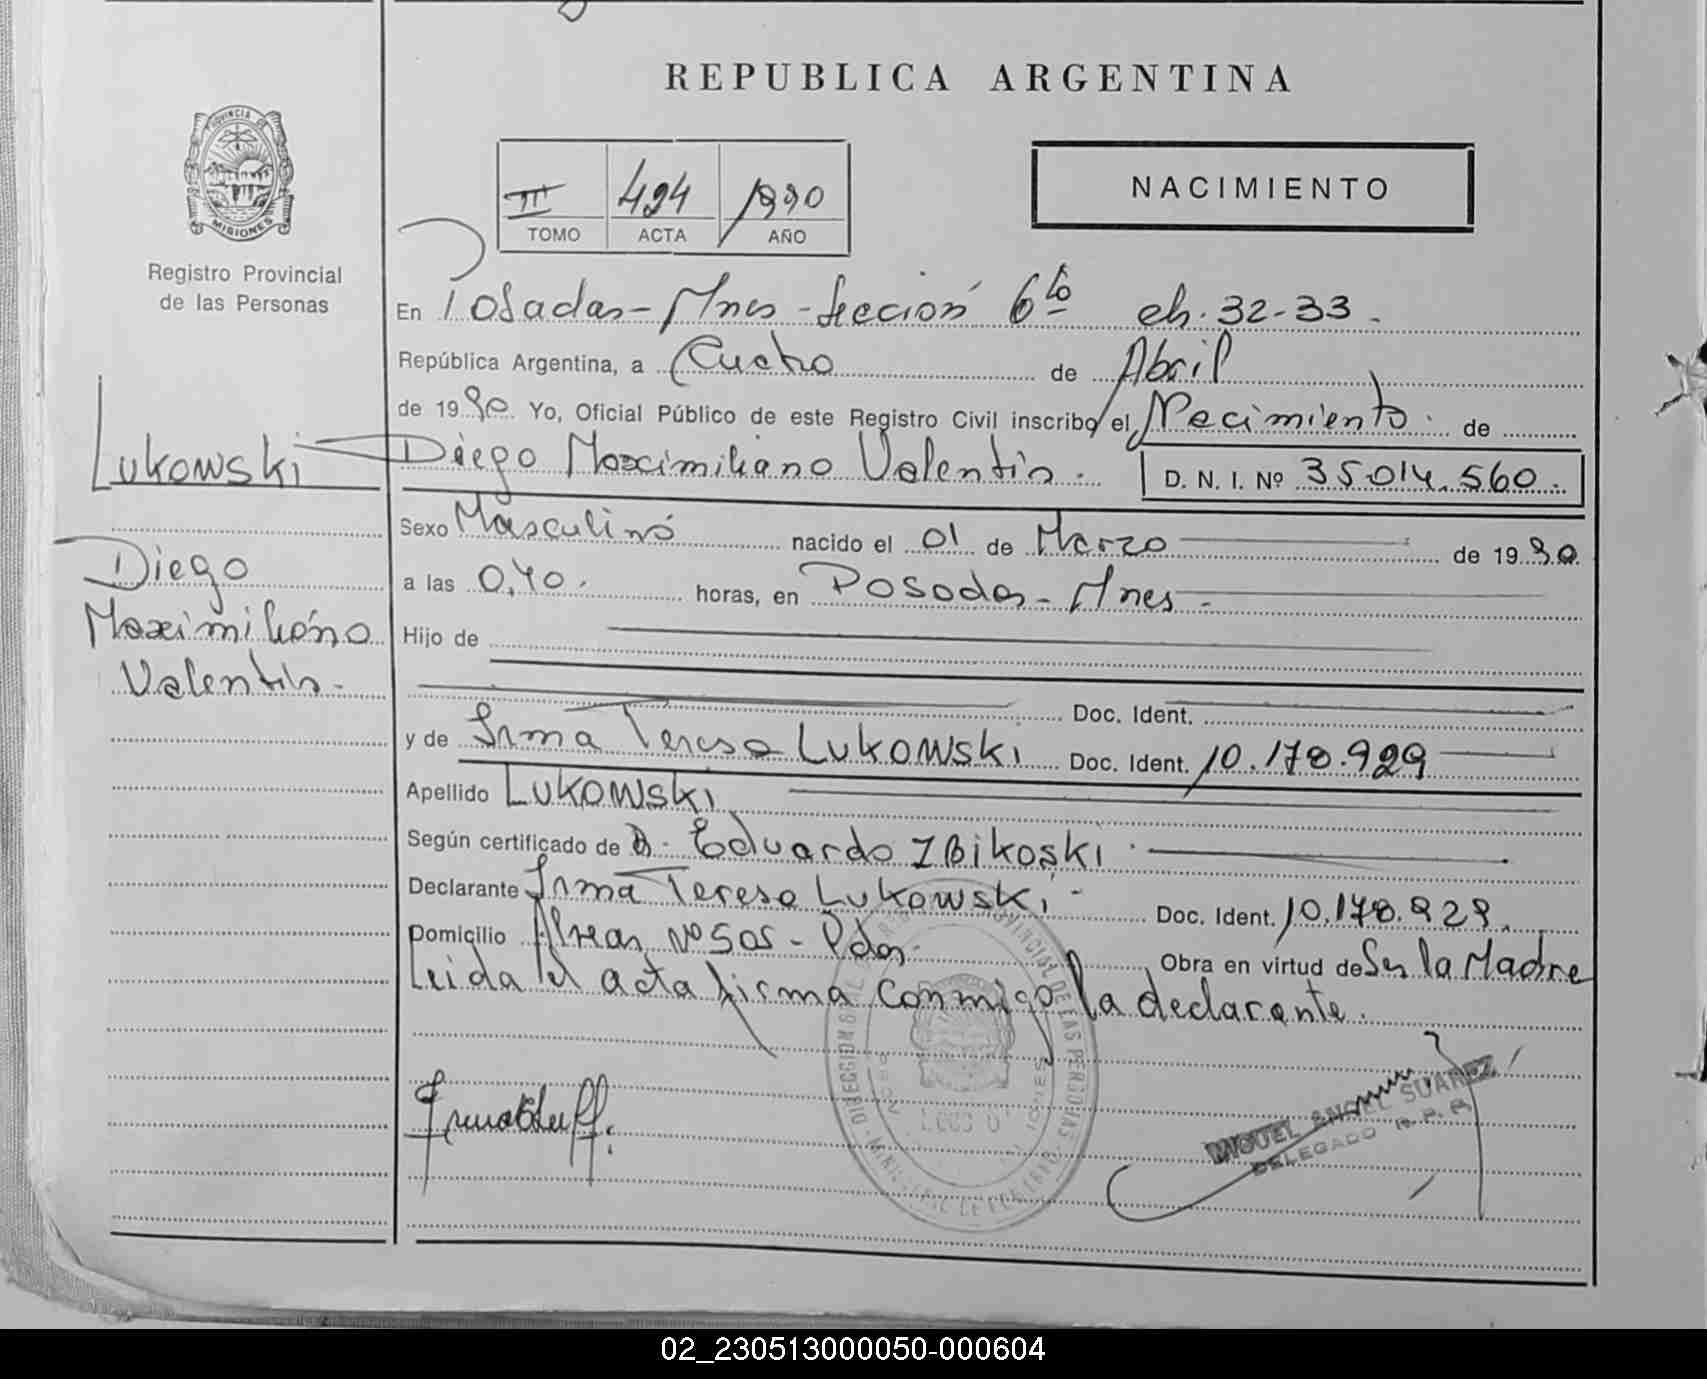 REPUBLICA ARGENTINA
PROVINCIA DE
MISIONES
Registro Provincial
de las Personas
III 494 1990
TOMO ACTA AÑO
NACIMIENTO
En Posadas - Mnes - Sección 6to ch. 32-33.
República Argentina, a Ocho de Abril
de 1990. Yo, Oficial Público de este Registro Civil inscribo el Nacimiento de
Lukowski
Diego Maximiliano Valentín. D. N. I. Nº 35.014.560.
Sexo Masculino nacido el 01 de Marzo de 1990.
Diego
Maximiliano
Valentín.
a las 0,40. horas, en Posadas - Mnes.
Hijo de
Doc. Ident.
y de Irma Teresa Lukowski Doc. Ident. 10.178.929
Apellido Lukowski
Según certificado de D. Eduardo Zbikoski.
Declarante Irma Teresa Lukowski - Doc. Ident. 10.178.929.
Domicilio Nº 505 - Pdas. Obra en virtud de Ser la Madre
Leida el acta firma conmigo la declarante.
MIGUEL ANGEL SUAREZ
DELEGADO R. P. P.
02_230513000050-000604